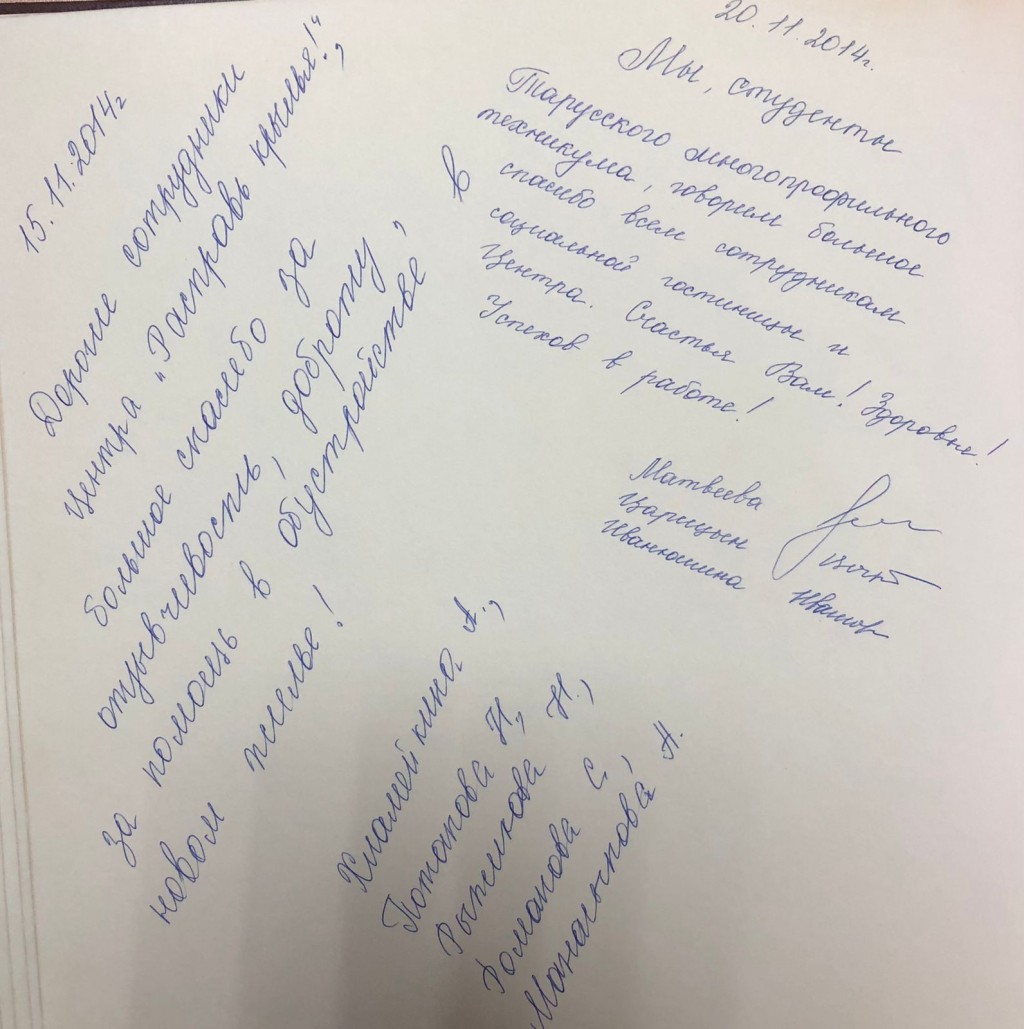 15.11.2014г
Дорогие сотрудники
центра „Расправь крылья!“,
большое спасибо за
отзывчевость, доброту,
за помощь в обустройстве в
новом жилье!
Хламейкина А.,
Потапова Н.,
Рыжикова Н.,
Романова С.,
А.
20.11.2014г.
Мы, студенты
Тарусского многопрофильного
техникума, говорим большое
спасибо всем сотрудникам
социальной гостиницы и
Центра. Счастья Вам! Здоровье!
Успехов в работе!
Матвеева
Царицын
Иванюшина